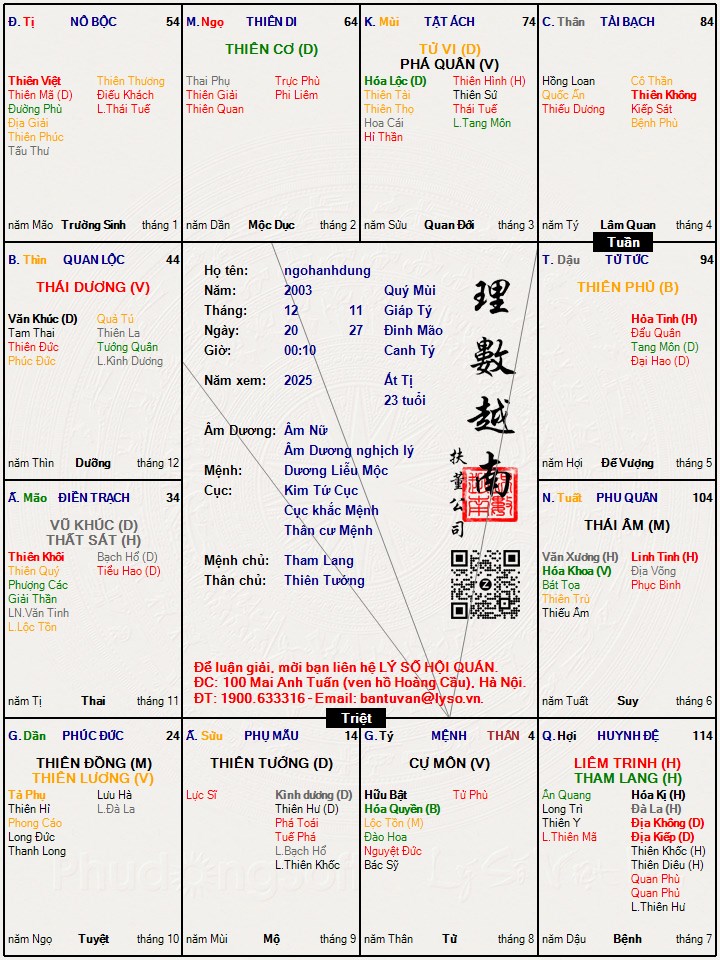 Đ. Tị NÔ BỘC 54
THIÊN CƠ (D)
Thiên Việt
Thiên Mã (D)
Đường Phù
Địa Giải
Thiên Phúc
Tấu Thư
Thiên Thương
Điếu Khách
L.Thái Tuế
năm Mão Trường Sinh tháng 1
M. Ngọ THIÊN DI 64
Thai Phụ
Thiên Giải
Thiên Quan
Trực Phù
Phi Liêm
năm Dần Mộc Dục tháng 2
K. Mùi TẬT ÁCH 74
TỬ VI (D)
PHÁ QUÂN (V)
Hóa Lộc (D)
Thiên Tài
Thiên Thọ
Hoa Cái
Hỉ Thần
Thiên Hình (H)
Thiên Sứ
Thái Tuế
L.Tang Môn
năm Sửu Quan Đới tháng 3
C. Thân TÀI BẠCH 84
Hồng Loan
Quốc Ấn
Thiếu Dương
Cô Thần
Thiên Không
Kiếp Sát
Bệnh Phù
năm Tý Lâm Quan tháng 4
Tuần
B. Thìn QUAN LỘC 44
THÁI DƯƠNG (V)
Văn Khúc (D)
Tam Thai
Thiên Đức
Phúc Đức
Quả Tú
Thiên La
Tướng Quân
L.Kình Dương
năm Thìn Dưỡng tháng 12
Họ tên: ngohanhdung
Năm: 2003 Quý Mùi
Tháng: 12 11 Giáp Tý
Ngày: 20 27 Đinh Mão
Giờ: 00:10 Canh Tý
Năm xem: 2025 Ất Tị
23 tuổi
Âm Dương: Âm Nữ
Âm Dương nghịch lý
Mệnh: Dương Liễu Mộc
Cục: Kim Tứ Cục
Cục khắc Mệnh
Thân cư Mệnh
Mệnh chủ: Tham Lang
Thân chủ: Thiên Tướng
理數越南
扶董公司
T. Dậu TỬ TỨC 94
THIÊN PHỦ (B)
Hỏa Tinh (H)
Đẩu Quân
Tang Môn (D)
Đại Hao (D)
năm Hợi Đế Vượng tháng 5
Ấ. Mão ĐIỀN TRẠCH 34
VŨ KHÚC (D)
THẤT SÁT (H)
Thiên Khôi
Thiên Quý
Phượng Các
Giải Thần
LN.Văn Tinh
L.Lộc Tồn
Bạch Hổ (D)
Tiểu Hao (D)
năm Tị Thai tháng 11
N. Tuất PHU QUÂN 104
THÁI ÂM (M)
Văn Xương (H)
Hóa Khoa (V)
Bát Tọa
Thiên Trù
Thiếu Âm
Linh Tinh (H)
Địa Võng
Phục Binh
năm Tuất Suy tháng 6
Để luận giải, mời bạn liên hệ LÝ SỐ HỘI QUÁN.
ĐC: 100 Mai Anh Tuấn (ven hồ Hoàng Cầu), Hà Nội.
ĐT: 1900.633316 - Email: bantuvan@lyso.vn.
Triệt
G. Dần PHÚC ĐỨC 24
THIÊN ĐỒNG (M)
THIÊN LƯƠNG (V)
Tả Phụ
Thiên Hỉ
Phong Cáo
Long Đức
Thanh Long
Lưu Hà
L.Đà La
năm Ngọ Tuyệt tháng 10
Ấ. Sửu PHỤ MẪU 14
THIÊN TƯỚNG (D)
Lực Sĩ
Kình dương (D)
Thiên Hư (D)
Phá Toái
Tuế Phá
L.Bạch Hổ
L.Thiên Khốc
năm Mùi Mộ tháng 9
G. Tý MỆNH THÂN 4
CỰ MÔN (V)
Hữu Bật
Hóa Quyền (B)
Lộc Tồn (M)
Đào Hoa
Nguyệt Đức
Bác Sỹ
Tử Phù
năm Thân Tử tháng 8
Q. Hợi HUYNH ĐỆ 114
LIÊM TRINH (H)
THAM LANG (H)
Ân Quang
Long Trì
Thiên Y
L.Thiên Mã
Hóa Kị (H)
Đà La (H)
Địa Không (D)
Địa Kiếp (D)
Thiên Khốc (H)
Thiên Diêu (H)
Quan Phù
Quan Phủ
L.Thiên Hư
năm Dậu Bệnh tháng 7